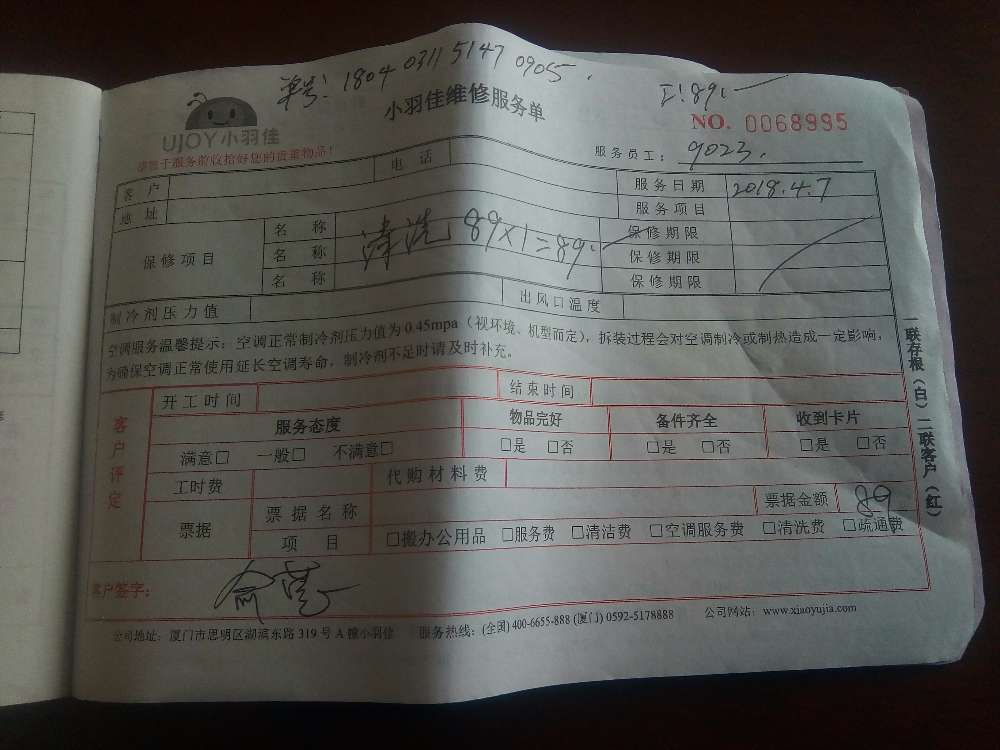 单号：1804 0311 5147 0905.
工：89.-
UJOY小羽佳
小羽佳维修服务单
NO. 0068995
请您于服务前收拾好您的贵重物品！
服务员工： 9023.
客户 电话 服务日期 2018.4.7
地址 服务项目
保修项目 名称 清洗 89×1=89. 保修期限
名称 保修期限
名称 保修期限
制冷剂压力值 出风口温度
空调服务温馨提示：空调正常制冷剂压力值为0.45mpa（视环境、机型而定），拆装过程会对空调制冷或制热造成一定影响，
为确保空调正常使用延长空调寿命，制冷剂不足时请及时补充。
客户评定 开工时间 结束时间
服务态度 物品完好 备件齐全 收到卡片
满意□ 一般□ 不满意□ □是 □否 □是 □否 □是 □否
工时费 代购材料费
票据 票据名称 票据金额 89
项目 □搬办公用品 □服务费 □清洁费 □空调服务费 □清洗费 □疏通费
客户签字：
公司地址：厦门市思明区湖滨东路319号A幢小羽佳 服务热线：(全国) 400-6655-888 (厦门) 0592-5178888 公司网站：www.xiaoyujia.com
一联存根（白）二联客户（红）